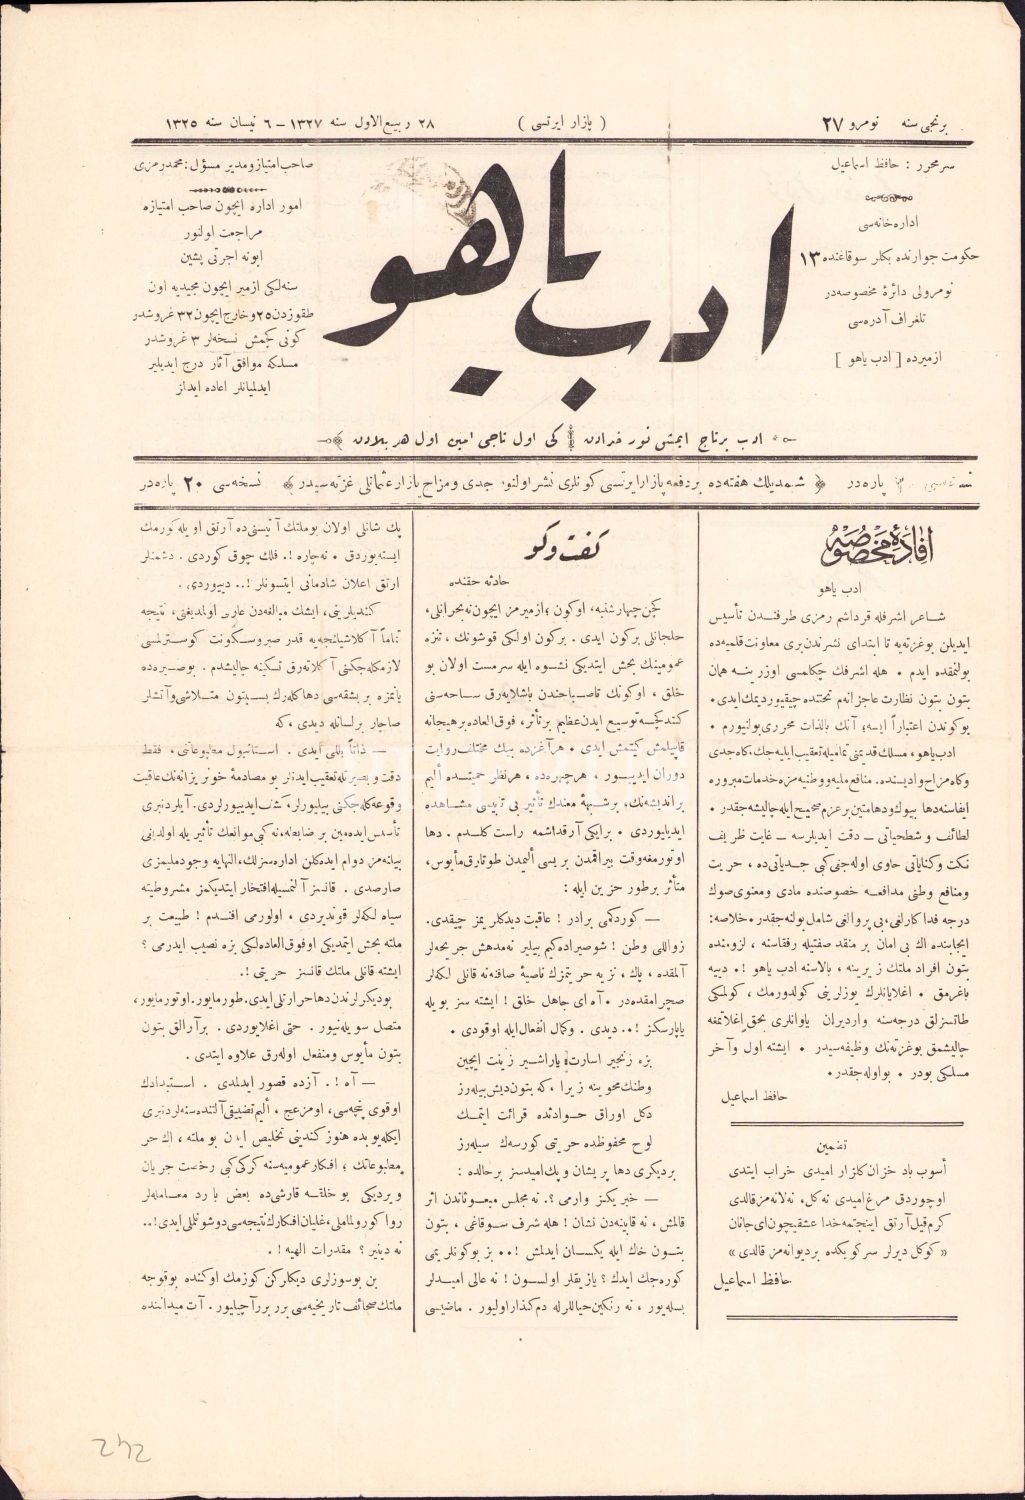 برنجی سنه نومرو ٢٧
( پازار ایرتسی )
٢٨ ربیع‌الاول سنه ١٣٢٧ – ٦ نیسان سنه ١٣٢٥
سرمحرر : حافظ اسماعیل
اداره‌خانه‌سی
حکومت جوارنده بکلر سوقاغنده ١٣
نومرولی دائرهٔ مخصوصه‌در
تلغراف آدره‌سی
ازمیرده [ ادب یاهو ]
ادب یاهو
صاحب امتیاز و مدیر مسؤل : محمد رمزی
امور اداره ایچون صاحب امتیازه
مراجعت اولنور
ابونه اجرتی پشین
سنه‌لکی ازمیر ایچون مجیدیه اون
طقوزدن ٢٥ و خارج ایچون ٣٢ غروشدر
کونی کچمش نسخه‌لر ٣ غروشدر
مسلکه موافق آثار درج ایدیلیر
ایدلمیانلر اعاده ایداز
ادب برتاج ایمش نور خدادن کی اول تاجی امین اول هر بلادن
پاره‌در ﴿ شمدیلك هفته‌ده بر دفعه پازار ایرتسی کونلری نشر اولنور جدی و مزاح یازار عثمانلی غزته‌سیدر ﴾ نسخه‌سی ٢٠ پاره‌در
افادهٔ مخصوصه
ادب یاهو
شاعر اشرفله قرداشم رمزی طرفندن تأسیس
ایدیلن بوغزته‌یه تا ابتدای نشرندن بری معاونت قلمیه‌ده
بولنمقده ایدم . هله اشرفك چکلمسی اوزرینه همان
بتون بتون نظارت عاجزانه‌م تحتنده چیقیوردیمك‌ایدی .
بوکوندن اعتباراً ایسه ؛ آنك بالذات محرری بولنیورم .
ادب یاهو ، مسلك قدیمنی تمامیله تعقیب ایلیه‌جك ، کاه جدی
وکاه مزاح وادیسنده . منافع ملیه و وطنیه‌مزه خدمات مبروره
ایفاسنه دها بیوك و دها متین بر عزم صحیح ایله چالیشه جقدر .
لطائف و شطحیاتی – دقت ایدیلرسه – غایت ظریف
نکت وکنایاتی حاوی اوله جغی کبی جدیاتی ده ، حریت
ومنافع وطنی مدافعه خصوصنده مادی ومعنوی صوك
درجه فداکارلغی ، بی پروالغی شامل بولنه جقدر . خلاصه :
ایجابنده اك بی امان بر منقد صفتیله رفقاسنه ، لزومنده
بتون افراد ملتك زیرینه ، بالاسنه ادب یاهو ! . دییه
باغرمق . اغلایانلرك یوزلرینی کولدورمك ، کولمکی
طاتسزلق درجه‌سنه واردیران یاوانلری بحق اغلاتمغه
چالیشمق بوغزته‌نك وظیفه‌سیدر . ایشته اول و آخر
مسلکی بودر . بو اوله جقدر .
حافظ اسماعیل
تضمین
أسوب باد خزان کلزار امیدی خراب ایتدی
اوچوردق مرغ امیدی نه کل ، نه لانه‌مز قالدی
کرم قیل آرتق اینجتمه خدا عشقیچون ای جانان
« کوکل دیرلر سرکویکده بر دیوانه‌مز قالدی »
حافظ اسماعیل
کفت وکو
حادثه حقنده
کچن چهارشنبه ، اوکون ؛ ازمیرمز ایچون نه بحرانلی ،
خلجانلی برکون ایدی . برکون اولکی قوشونك ، تنزه
عمومینك بخش ایتدیکی نشوه ایله سرمست اولان بو
خلق ، اوکونك تا صباحندن باشلایه‌رق ساحه‌سنی
کندکجه توسیع ایدن عظیم برتأثر ، فوق‌العاده برهیجانه
قاپیلمش کیتمش ایدی . هر آغزده بیك مختلف روایت
دوران ایدیبور ، هر چهره‌ده ، هر نظر حمیتده ألیم
براندیشه‌نك ، برشبههٔ معندك تأثیر بی تابیسی مشاهده
ایدیایوردی . برایکی آرقداشمه راست کلدم . دها
اوتورمغه وقت بیراقمدن بریسی ألیمدن طوتارق مأیوس ،
متأثر برطور حزین ایله :
— کوردکمی برادر ! عاقبت دیدکلر یمز چیقدی .
زواللی وطن ! شو صیراده کیم بیلیر نه مدهش جریحه‌لر
آلمقده ، پاك ، نزیه حریتمزك ناصیهٔ صافنه نه قانلی لکه‌لر
صچرامقده‌در . آه ای جاهل خلق ! ایشته سز بویله
یاپارسکز ! . . دیدی . وکمال انفعال ایله اوقودی .
بزه زنجیر اسارت یاراشیر زینت ایچین
وطنك محوینه زیرا ، که بتون دیش بیله‌رز
دکل اوراق حوادثده قرائت ایتمك
لوح محفوظده حرتی کورسه‌ك سیله‌رز
بردیکری دها پریشان و پك امیدسز برحالده :
— خبریکز وارمی ؟ . نه مجلس مبعوثاندن اثر
قالمش ، نه قابینه‌دن نشان ! هله شرف سوقاغی ، بتون
بتون خاك ایله یکسان ایدلمش ! . . بز بوکونلر یمی
کوره جك ایدك ؟ یازیقلر اولسون ! نه عالی امیدلر
بسله‌یور ، نه رنکین خیاللرله دمکذار اولیور . ماضیسی
پك شانلی اولان بوملتك آتیسنی ده آرتق اویله کورمك
ایسته‌یوردق . نه چاره ! . فلك چوق کوردی . دشمنلر
ارتق اعلان شادمانی ایتسونلر ! . . دیبوردی .
کندیلرینی ، ایشك مبالغه‌دن عاری اولمدیغنی ، نتیجه
تماماً آکلاشیلنجه‌یه قدر صبر و سکونت کوسترلمسی
لازمکله‌جکنی آکلاته‌رق تسکینه چالیشدم . بوصیره‌ده
یانمزه بر بشقه‌سی دها کله‌رك بسبتون متلاشی و آتشلر
صاچار بر لسانله دیدی ، که
— ذاتاً بللی ایدی . استانبول مطبوعاتنی ، فقط
دقت و بصیرتله تعقیب ایدنلر بو مصادمهٔ خونریزانه‌نك عاقبت
وقوعه کله‌جکنی بیلیورلر ، کشف ایدیبورلردی . آیلردنبری
تأسس ایده‌مین بر ضابطه ، نه کبی موانعك تأثیر یله اولدیغی
بیانه‌مز دوام ایده‌کلن اداره‌سزلك ، النهایه وجود ملیمزی
صارصدی . قانسز آلنمسیله افتخار ایتدیکمز مشروطیته
سیاه لکه‌لر قوندیردی ، اولورمی افندم ! طبیعت بر
ملته بخش ایتمدیکی اوفوق‌العاده‌لکی بزه نصیب ایدرمی ؟
ایشته قانلی ملتك قانسز حریتی ! .
بودیکرلرندن دها حرارتلی ایدی . طورمایور . اوتورمایور ،
متصل سویله‌نیور . حتی اغلایوردی . برآرالق بتون
بتون مأیوس ومنفعل اوله‌رق علاوه ایتدی .
— آه ! . آزده قصور ایدلمدی . استبدادك
اوقوی پنچه‌سی ، اومزعج ، ألیم تضییقی آلتنده سنه‌لردنبری
ایکله‌یوبده هنوز کندینی تخلیص ایدن بوملته ، اك حر
مطبوعاتك ؛ افکار عمومیه‌سنه کرکی کبی رخصت جریان
ویردیکی بوخلقه قارشی ده بعض بارد معامله‌لر
روا کورولماملی ، غلیان افکارك نتیجه‌سی دوشونلملی ایدی ! . .
نه دینیر ؟ مقدرات الهیه ! .
بن بوسوزلری دیکلرکن کوزمك اوکنده بوقوجه
ملتك صحائف تاریخیه‌سی برر برر آچیلیور . آت میداننده
242